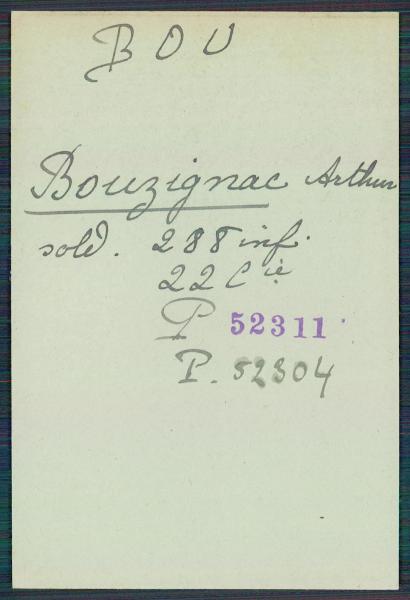 BOU
Bouzignac Arthur
sold. 288 inf.
22 Cie
P 52311
P. 52304